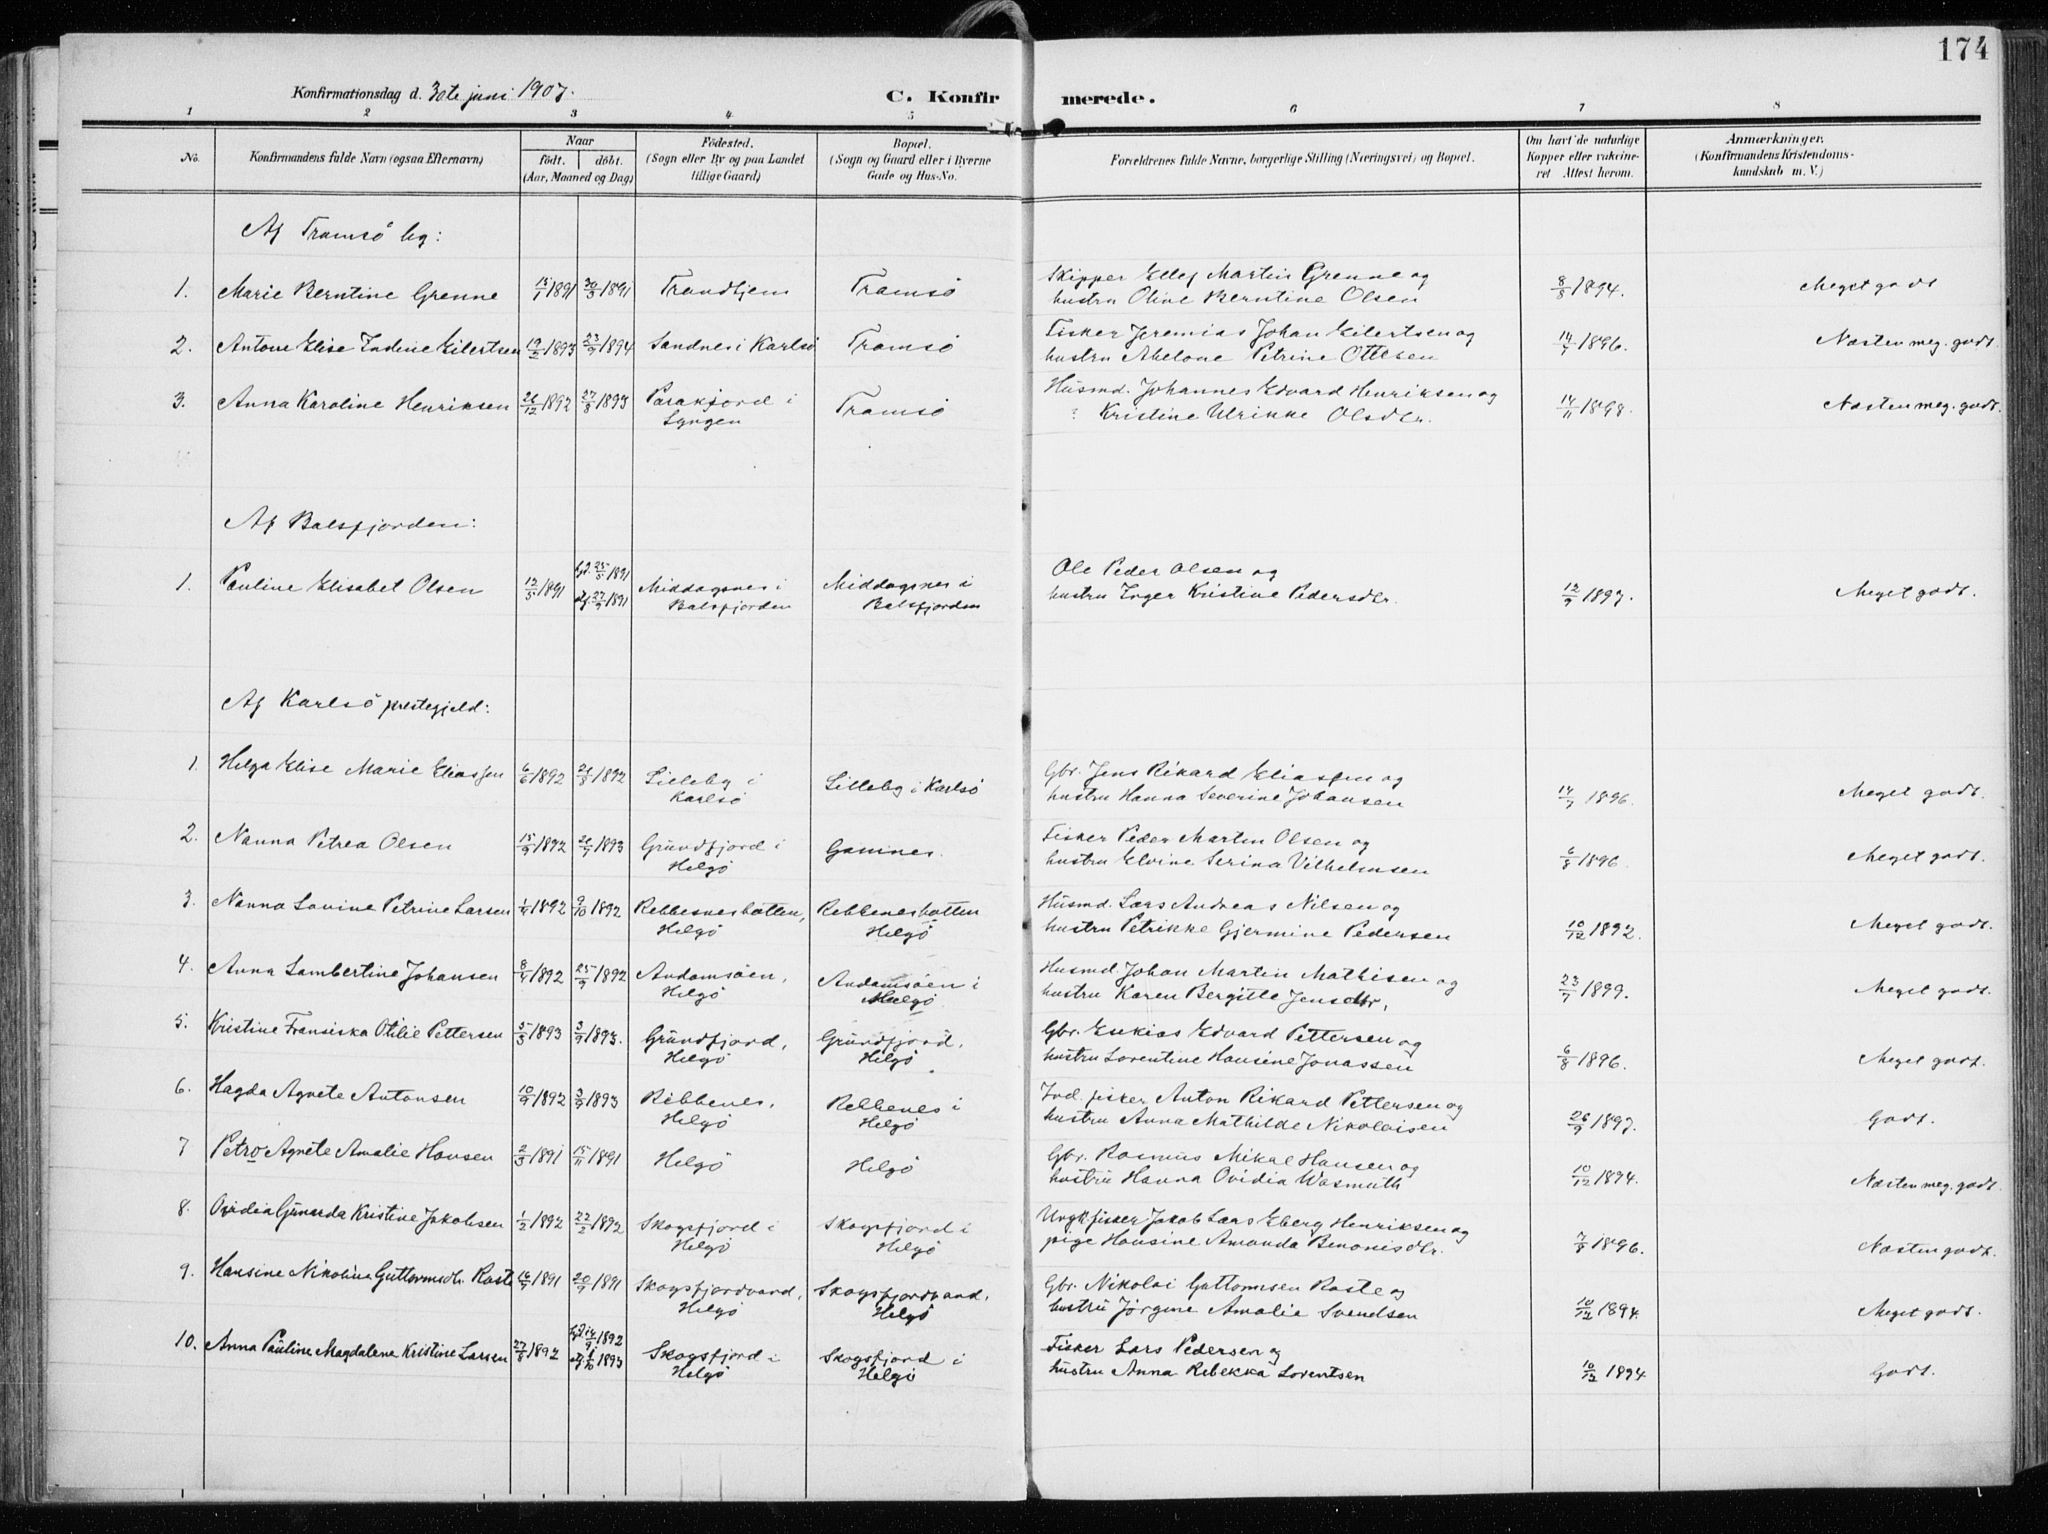 174
Konfirmationsdag d. 30te juni 1907.
C. Konfirmerede.
1 2 3 4 5 6 7 8
No. Konfirmandens fulde Navn (ogsaa Efternavn) Naar født. døbt. (Aar, Maaned og Dag) Fødested. (Sogn eller By og paa Landet tillige Gaard) Bopæl. (Sogn og Gaard eller i Byerne Gade og Hus-No. Forældrenes fulde Navne, borgerlige Stilling (Næringsvei) og Bopæl. Om havt de naturlige Kopper eller vakcineret Attest herom. Anmærkninger. (Konfirmandens Kristendomskundskab m. V.)
Af Tromsö by:
1. Marie Berntine Grenne 15/1 1891 30/3 1891 Trondhjem Tromsö Skipper Ellef Martin Grenne og
hustru Oline Berntine Olsen 8/8 1894. Meget godt
2. Antone Elise Indine Eilertsen 19/2 1893 23/9 1894 Sandnes i Karlsö Tromsö Fisker Jeremias Johan Eilertsen og
hustru Abelone Petrine Ottesen 14/7 1896. Næsten meg. godt.
3. Anna Karoline Henriksen 26/12 1892 27/8 1893 Parakfjord i Tromsö Husmd. Johannes Edvard Henriksen og
Lyngen ? Kristine Ulrikke Olsdtr. 14/11 1898. Næsten meg. godt.
Af Balsfjorden:
1. Pauline Elisabet Olsen 12/5 1891 hjd. 25/5 1891 Middagsnes i Middagsnes i Ole Peder Olsen og
df. 27/9 1891 Balsfjorden Balsfjorden hustru Inger Kristine Pedersdtr. 12/9 1897. Meget godt.
Af Karlsö prestegjeld:
1. Helga Elise Marie Eliassen 6/6 1892 21/8 1892 Lilleby i Lilleby i Karlsö Gbr. Jens Rikard Eliassen og
Karlsö hustru Hanna Severine Johansen 14/7 1896. Meget godt.
2. Nanna Petrea Olsen 15/9 1892 26/7 1893 Grundfjord i Gamnes. Fisker Peder Martin Olsen og
Helgö hustru Elvine Serina Vilhelmsen 6/8 1896. Meget godt.
3. Nanna Lovine Petrine Larsen 1/4 1892 9/10 1892 Rebbenesbotten, Rebbenesbotten Husmd. Lars Andreas Nilsen og
Helgö Helgö hustru Petrikke Gjermine Pedersen 10/12 1892. Meget godt.
4. Anna Lambertine Johansen 8/4 1892 25/9 1892 Andamsöen, Andamsöen i Husmd. Johan Martin Mathisen og
Helgö Helgö hustru Karen Bergitte Jensdtr, 23/7 1899. Meget godt.
5. Kristine Fransiska Otilie Pettersen 5/3 1893 3/9 1893. Grundfjord, Grundfjord, Gbr. Esekias Edvard Pettersen og
Helgö Helgö hustru Lorentine Hansine Jonassen 6/8 1896. Meget godt.
6. Hagda Agnete Antonsen 10/9 1892 3/9 1893 Rebbenes, Rebbenes i Ind. fisker Anton Rikard Pettersen og
Helgö Helgö hustru Anna Mathilde Nikolaisen 26/9 1897. Godt.
7 Petro Agnete Amalie Hansen 2/3 1891 15/11 1891 Helgö Helgö Gbr. Rasmus Mikal Hansen og
hustru Hanna Ovidia Wasmuth 10/12 1894. Næsten meg. godt.
8. Ovidia Gunarda Kristine Jakobsen 1/2 1892 22/2 1892 Skogsfjord i Skogsfjord i Ungk. fisker Jakob Lars Eberg Henriksen og
Helgö Helgö pige Hansine Amanda Benonisdtr. 7/8 1896. Næsten godt.
9. Hansine Nikoline Guttormsdtr. Raste 16/7 1891 20/9 1891 Skogsfjordvand, Skogsfjordvand, Gbr. Nikolai Guttormsen Raste og
Helgö Helgö hustru Jörgine Amalie Svendsen 10/12 1894. Meget godt.
10. Anna Pauline Magdalene Kristine Larsen 27/8 1892 hjd. 14/9 1892 Skogsfjord i Skogsfjord i Fisker Lars Pedersen og
df. 1/10 1893 Helgö Helgö hustru Anna Rebekka Lorentsen 10/12 1894 Godt.